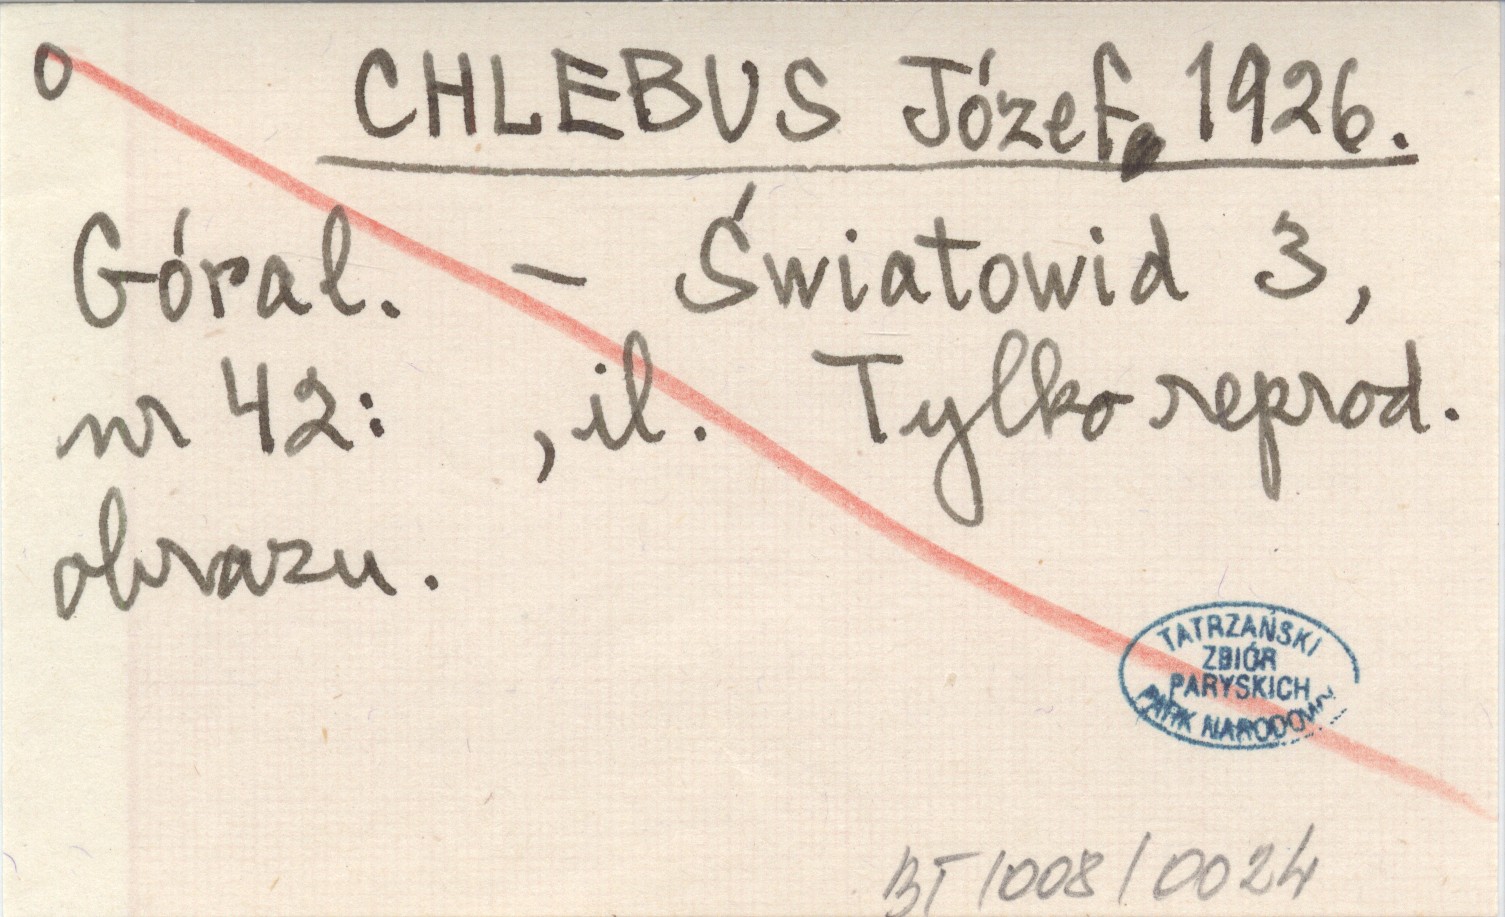 o CHLEBUS Józef, 1926.
Góral. - Światowid 3,
nr 42: , il. Tylko reprod.
obrazu.
TATRZAŃSKI
ZBIÓR
PARYSKICH
PARK NARODOWY
BT/008/0024